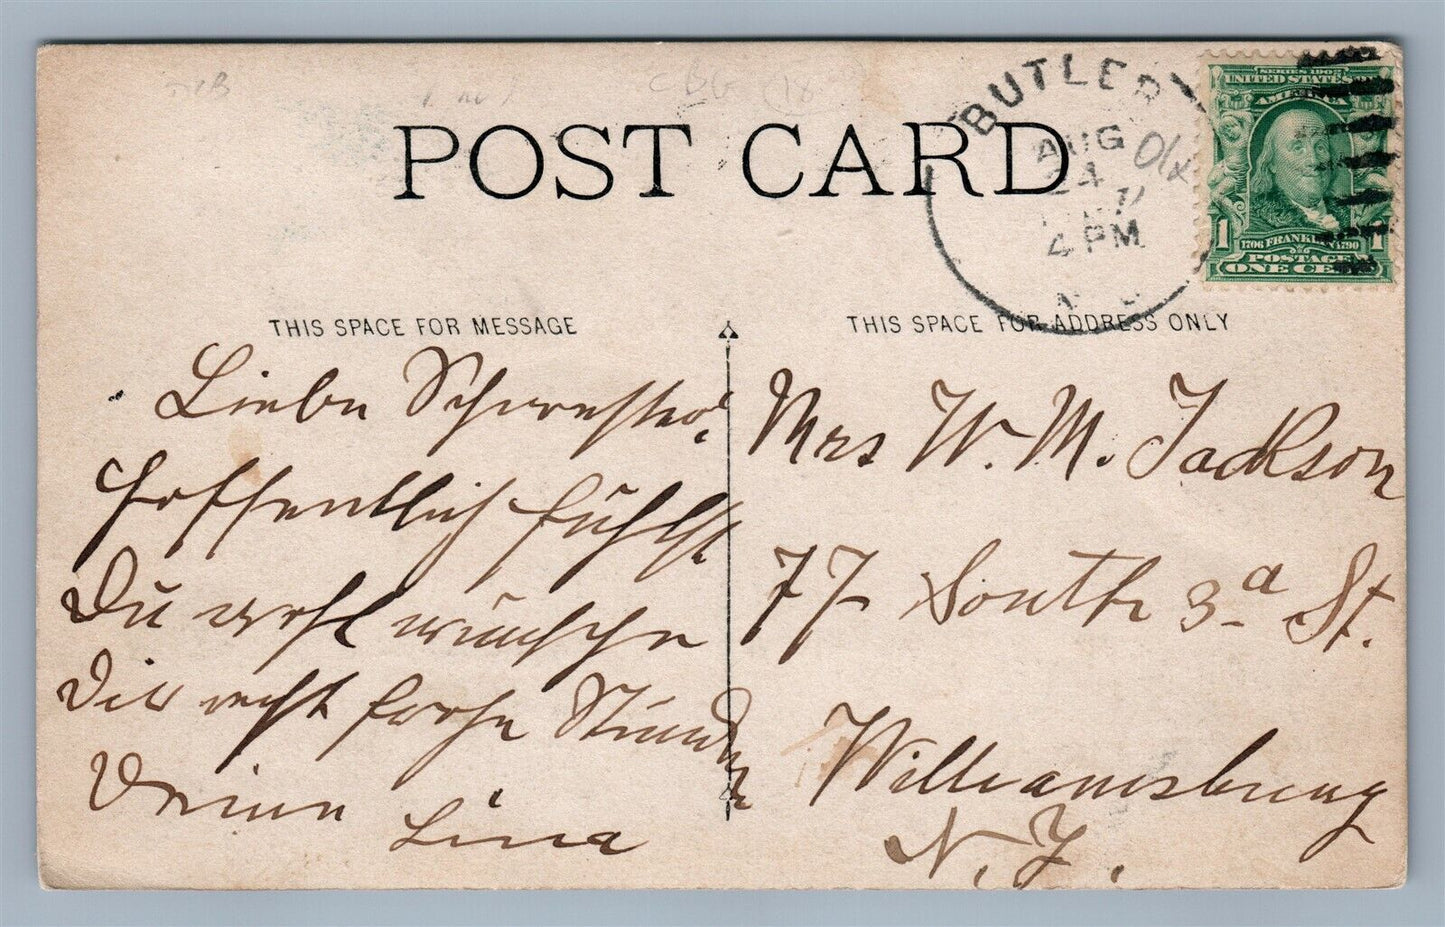 POST CARD
BUTLER
AUG
24
4 PM
SERIES 1902
UNITED STATES OF
AMERICA
1706 FRANKLIN 1790
1 1
POSTAGE
ONE CENT
THIS SPACE FOR MESSAGE
Liebe Schwester,
hoffentlich fühlst
Du wohl wünsche
Dir recht frohe Stunden
Deine
Lina
THIS SPACE FOR ADDRESS ONLY
Mrs W. M. Jackson
77 South 3d St.
Williamsburg
N.Y.